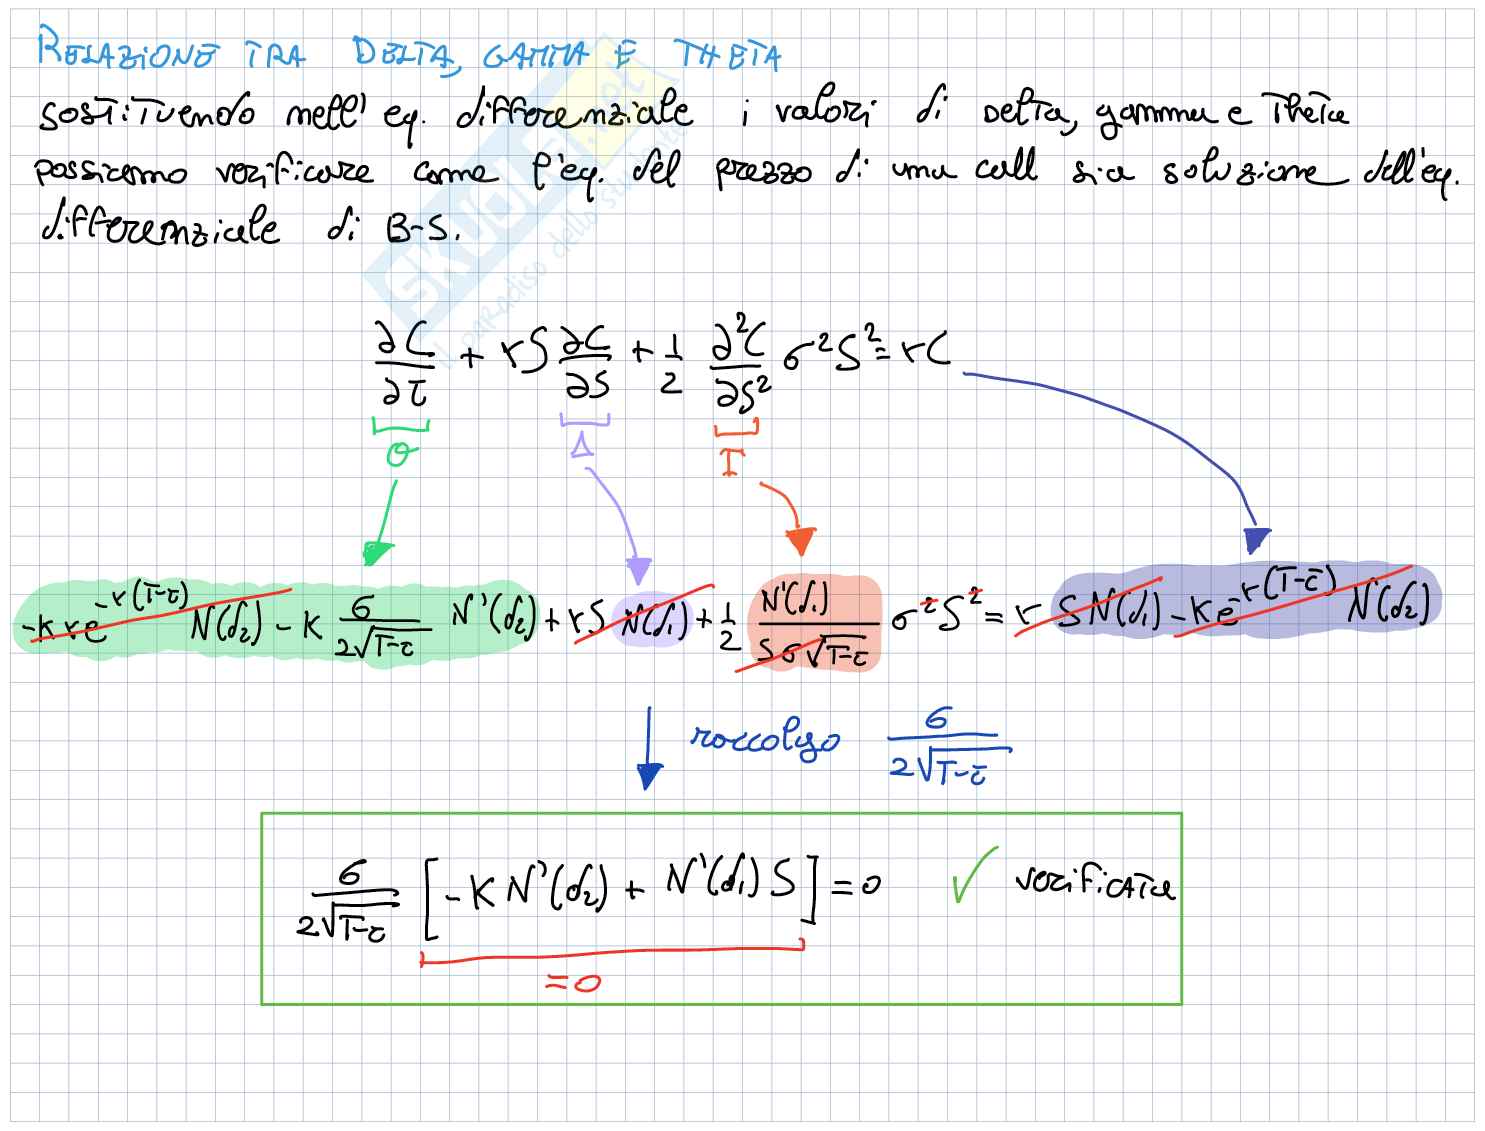 RELAZIONE TRA DELTA, GAMMA E THETA
sostituendo nell' eq. differenziale i valori di Delta, gamma e Theta
possiamo verificare come l'eq. del prezzo di una call sia soluzione dell'eq.
differenziale di B-S.
∂C/∂τ + rS ∂C/∂S + 1/2 ∂²C/∂S² σ²S² = rC
Θ Δ Γ
-K r e^-r(T-τ) N(d₂) - K σ/2√T-τ N'(d₂) + rS N(d₁) + 1/2 N'(d₁)/Sσ√T-τ σ²S² = r S N(d₁) - K e^-r(T-τ) N(d₂)
raccolgo σ/2√T-τ
σ/2√T-τ [-K N'(d₂) + N'(d₁) S] = 0 ✓ verificata
=0
SKUOLA.net
il paradiso dello studente